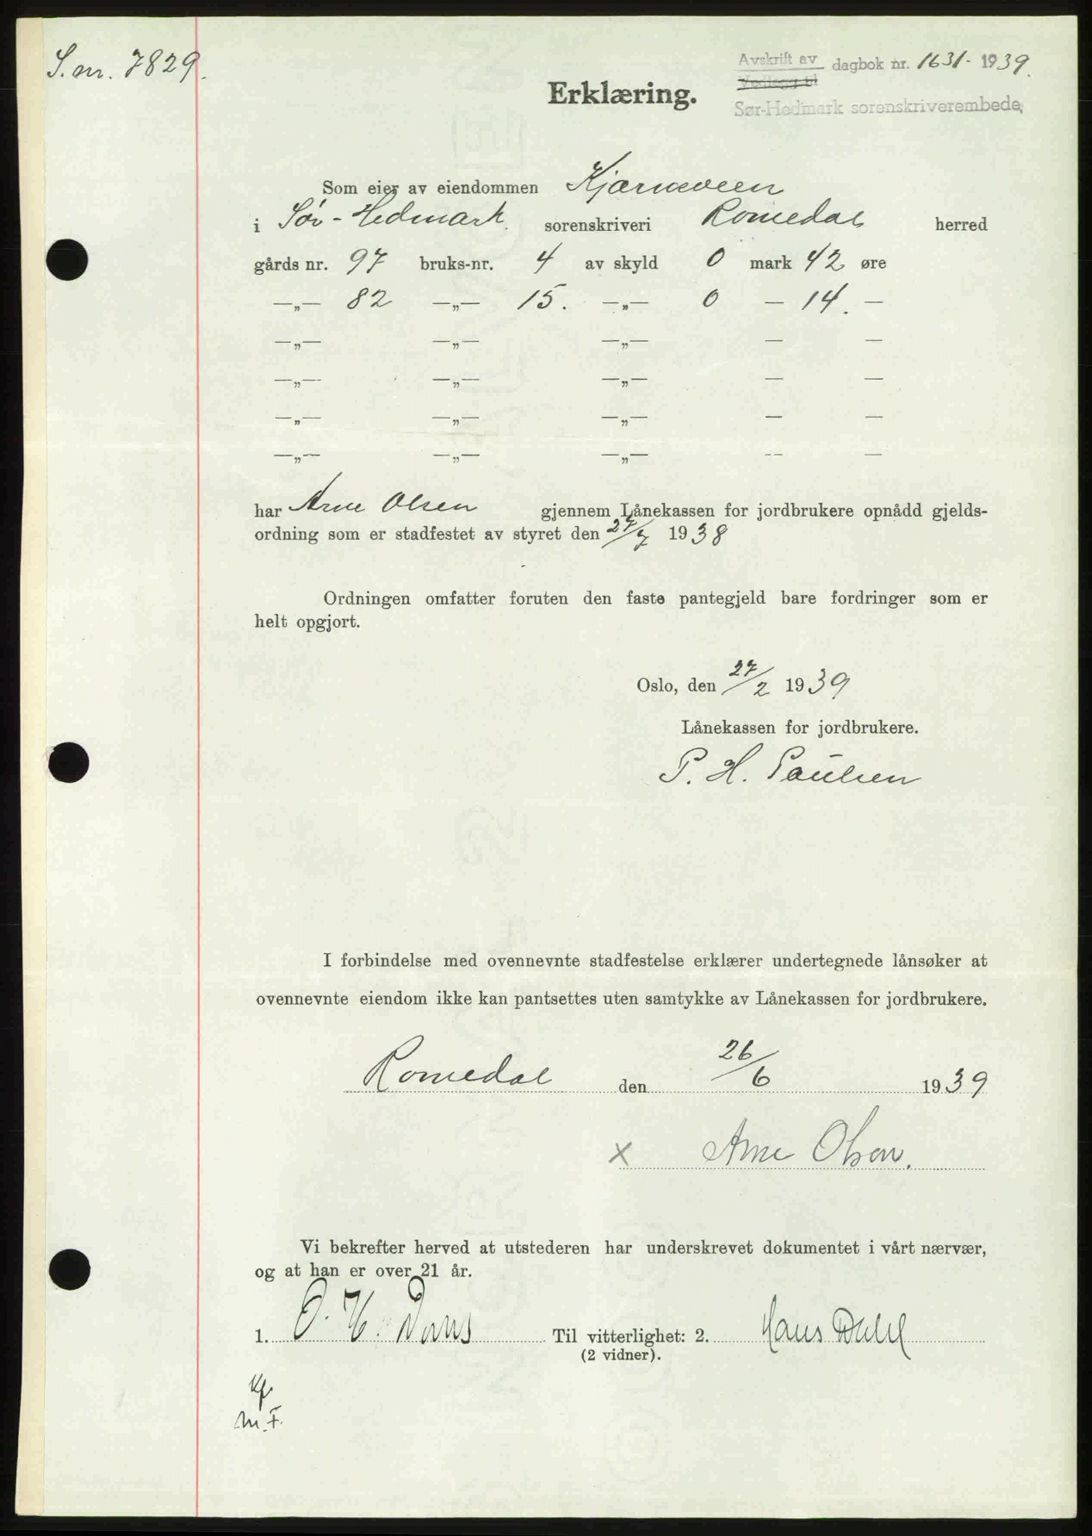 S.nr. 7829.
Avskrift av
Vedlegg til
dagbok nr. 1631- 1939.
Sør-Hedmark sorenskriverembede,
Erklæring.
Som eier av eiendommen Kjærnsveen
i Sør-Hedmark. sorenskriveri Romedal herred
gårds nr. 97 bruks-nr. 4 av skyld 0 mark 42 øre
—„— 82 —„— 15. —„— 0 — 14. —
—„— —„— —„— — —
—„— —„— —„— — —
—„— —„— —„— — —
—„— —„— —„— -- —
har Arne Olsen gjennem Lånekassen for jordbrukere opnådd gjelds-
ordning som er stadfestet av styret den 27/7 1938
Ordningen omfatter foruten den faste pantegjeld bare fordringer som er
helt opgjort.
Oslo, den 27/2 1939
Lånekassen for jordbrukere.
P. H. Paulsen
I forbindelse med ovennevnte stadfestelse erklærer undertegnede lånsøker at
ovennevnte eiendom ikke kan pantsettes uten samtykke av Lånekassen for jordbrukere.
Romedal den 26/6 1939
x Arne Olsen.
Vi bekrefter herved at utstederen har underskrevet dokumentet i vårt nærvær,
og at han er over 21 år.
1. O. H. Til vitterlighet: 2. Hans Dahl
(2 vidner).
Kf.
M.F.